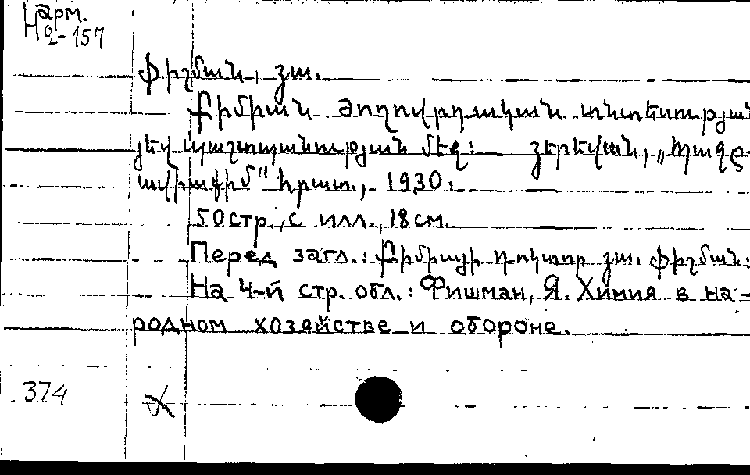 Нарм.
2-157
Ֆիշման, Յա.
Քիմիան ժողովրդական տնտեսության
յեվ պաշտպանության մեջ: Յերեվան, „Պազը-
ավիաքիմ" հրատ., 1930:
50 стр. с илл., 18 см.
Перед загл.: Քիմիայի դոկտոր Յա. Ֆիշման:
На 4-й стр. обл.: Фишман, Я. Химия в на-
родном хозяйстве и обороне.
374